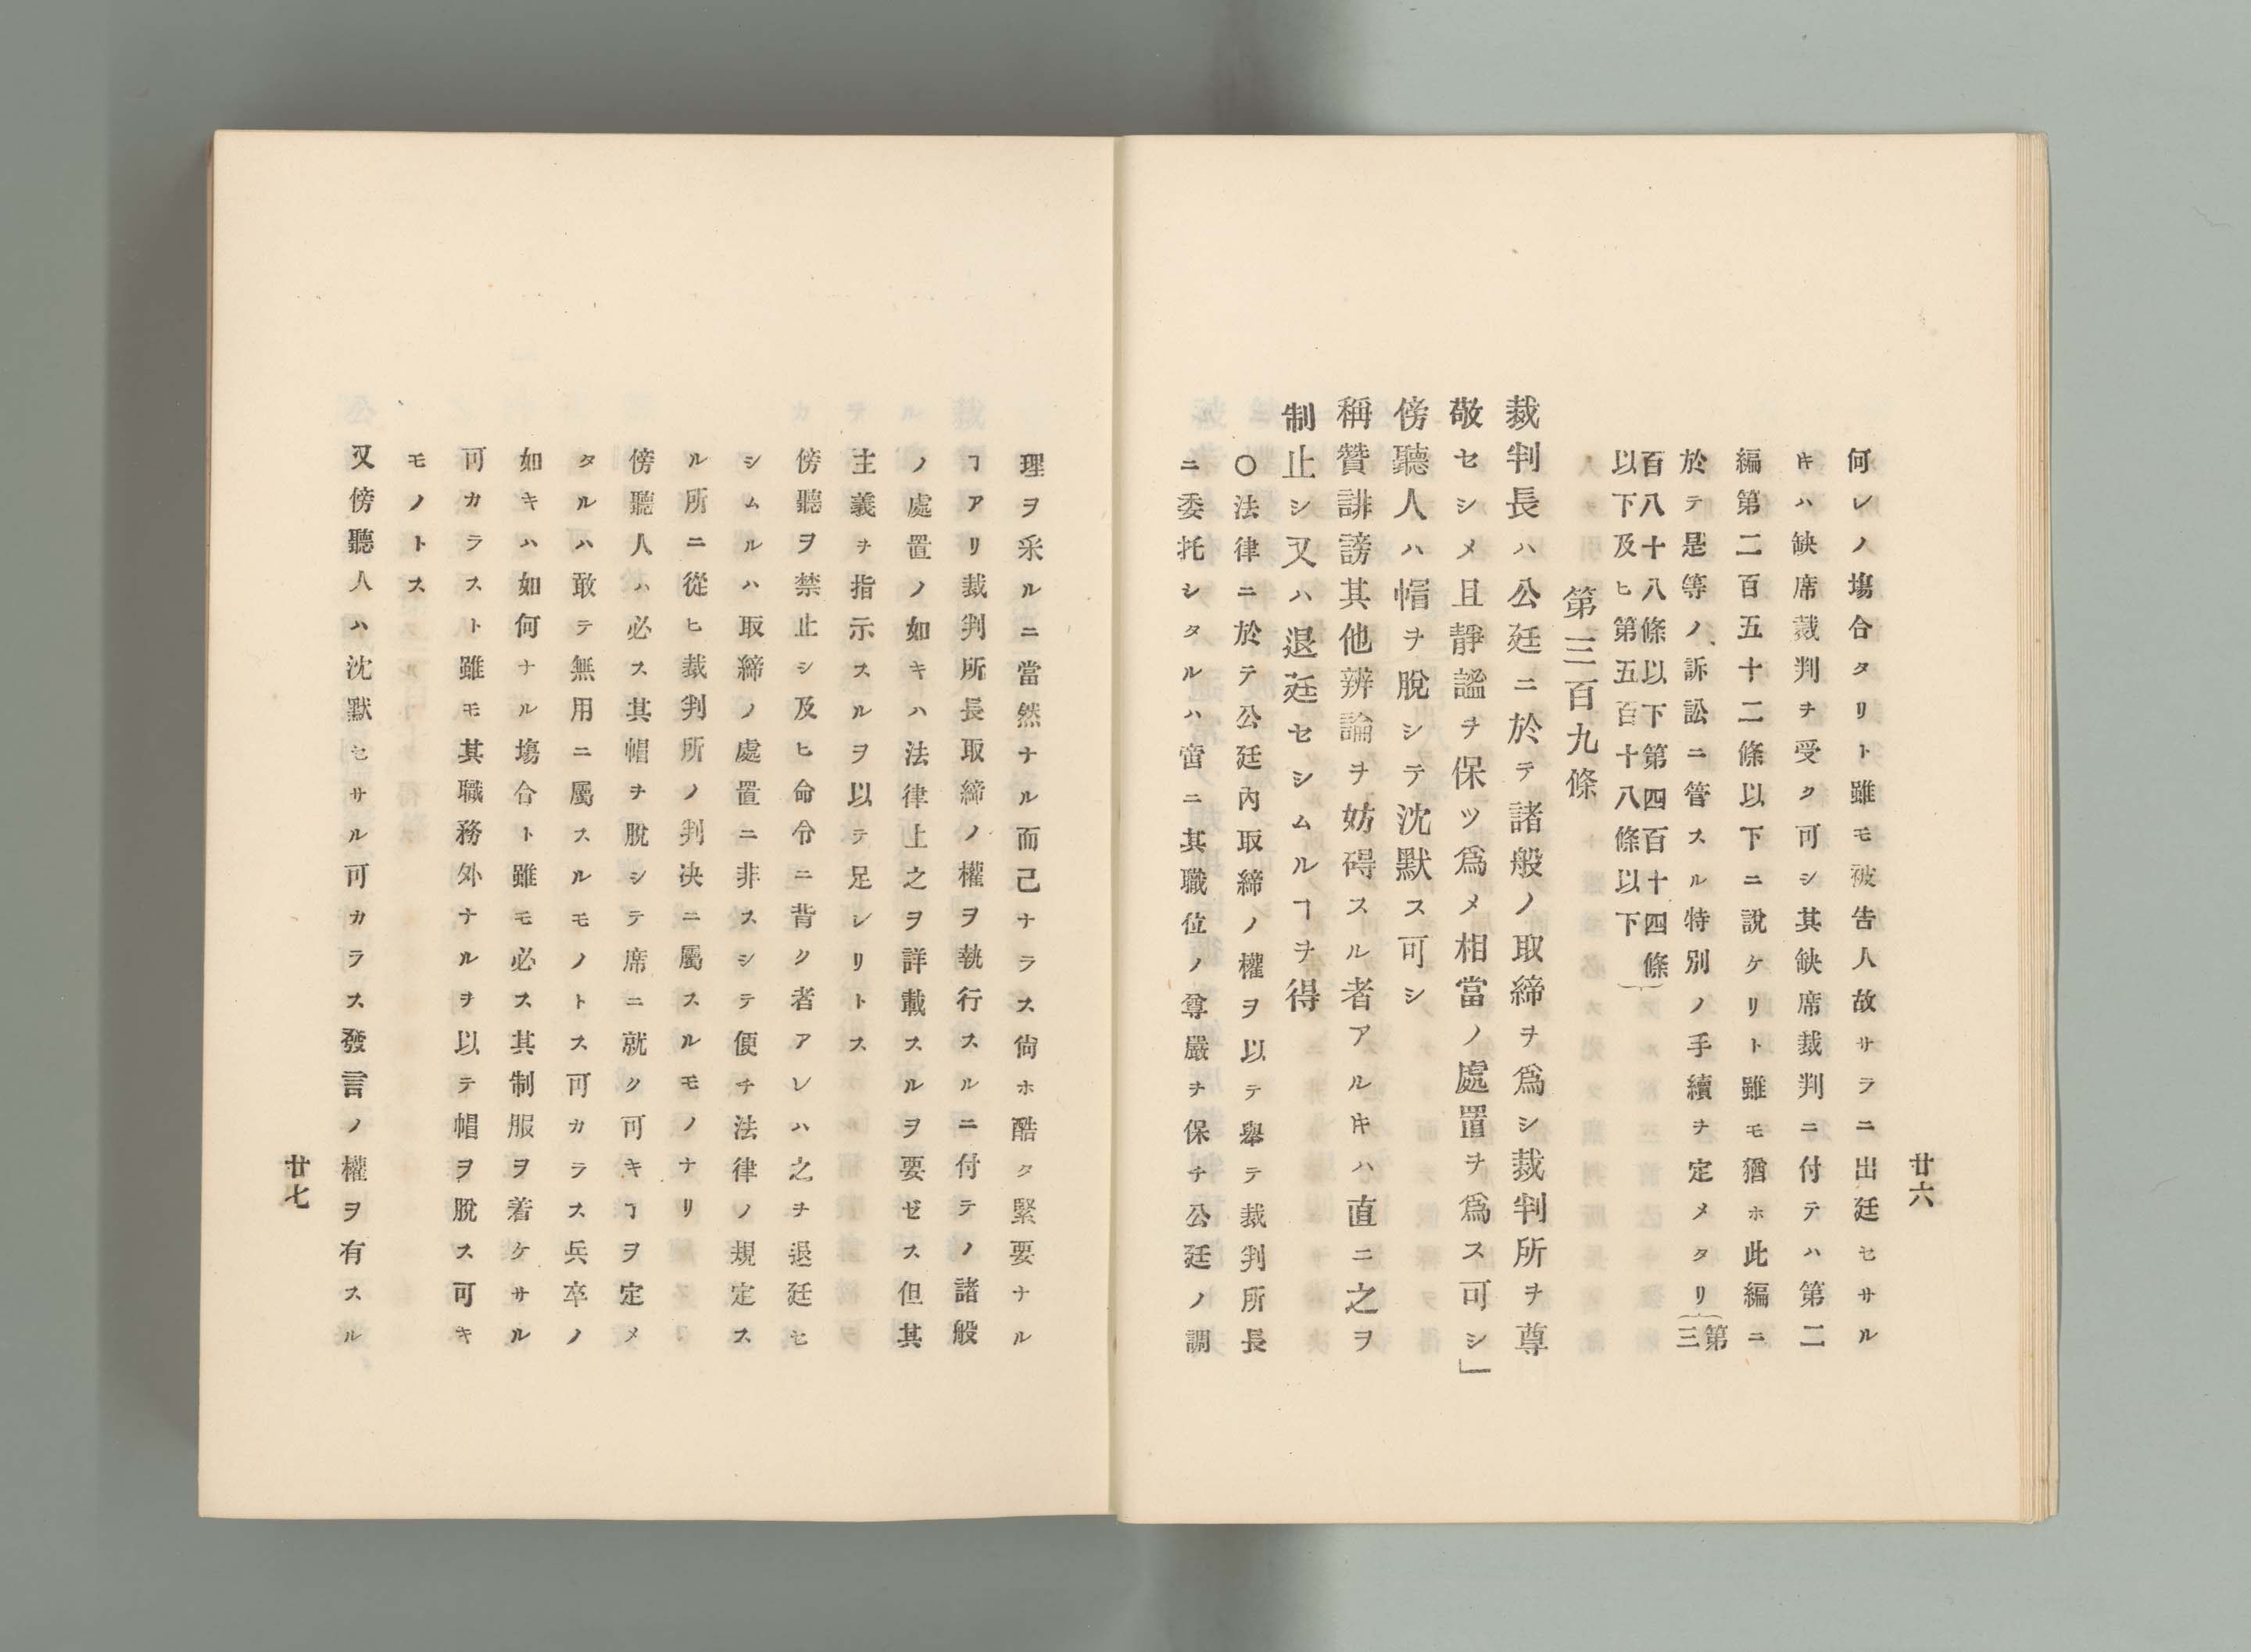 廿六
何レノ塲合タリト雖モ被告人故サラニ出廷セサル
キハ缺席裁判ヲ受ク可シ其缺席裁判ニ付テハ第二
編第二百五十二條以下ニ說ケリト雖モ猶ホ此編ニ
於テ是等ノ訴訟ニ管スル特別ノ手續ヲ定メタリ第三
百八十八條以下第四百十四條
以下及ヒ第五百十八條以下
第三百九條
裁判長ハ公廷ニ於テ諸般ノ取締ヲ爲シ裁判所ヲ尊
敬セシメ且靜謐ヲ保ツ爲メ相當ノ處置ヲ爲ス可シ」
傍聽人ハ帽ヲ脫シテ沈默ス可シ
稱贊誹謗其他辨論ヲ妨碍スル者アルキハ直ニ之ヲ
制止シ又ハ退廷セシムルヿヲ得
〇法律ニ於テ公廷內取締ノ權ヲ以テ擧テ裁判所長
ニ委托シタルハ啻ニ其職位ノ尊嚴ヲ保チ公廷ノ調
理ヲ采ルニ當然ナル而己ナラス尙ホ酷タ緊要ナル
ヿアリ裁判所長取締ノ權ヲ執行スルニ付テノ諸般
ノ處置ノ如キハ法律上之ヲ詳載スルヲ要ゼス但其
主義ヲ指示スルヲ以テ足レリトス
傍聽ヲ禁止シ及ヒ命令ニ背ク者アレハ之ヲ退廷セ
シムルハ取締ノ處置ニ非スシテ便チ法律ノ規定ス
ル所ニ從ヒ裁判所ノ判決ニ屬スルモノナリ
傍聽人ハ必ス其帽ヲ脫シテ席ニ就ク可キヿヲ定メ
タルハ敢テ無用ニ屬スルモノトス可カラス兵卒ノ
如キハ如何ナル塲合ト雖モ必ス其制服ヲ着ケサル
可カラスト雖モ其職務外ナルヲ以テ帽ヲ脫ス可キ
モノトス
又傍聽人ハ沈默セサル可カラス發言ノ權ヲ有スル
廿七